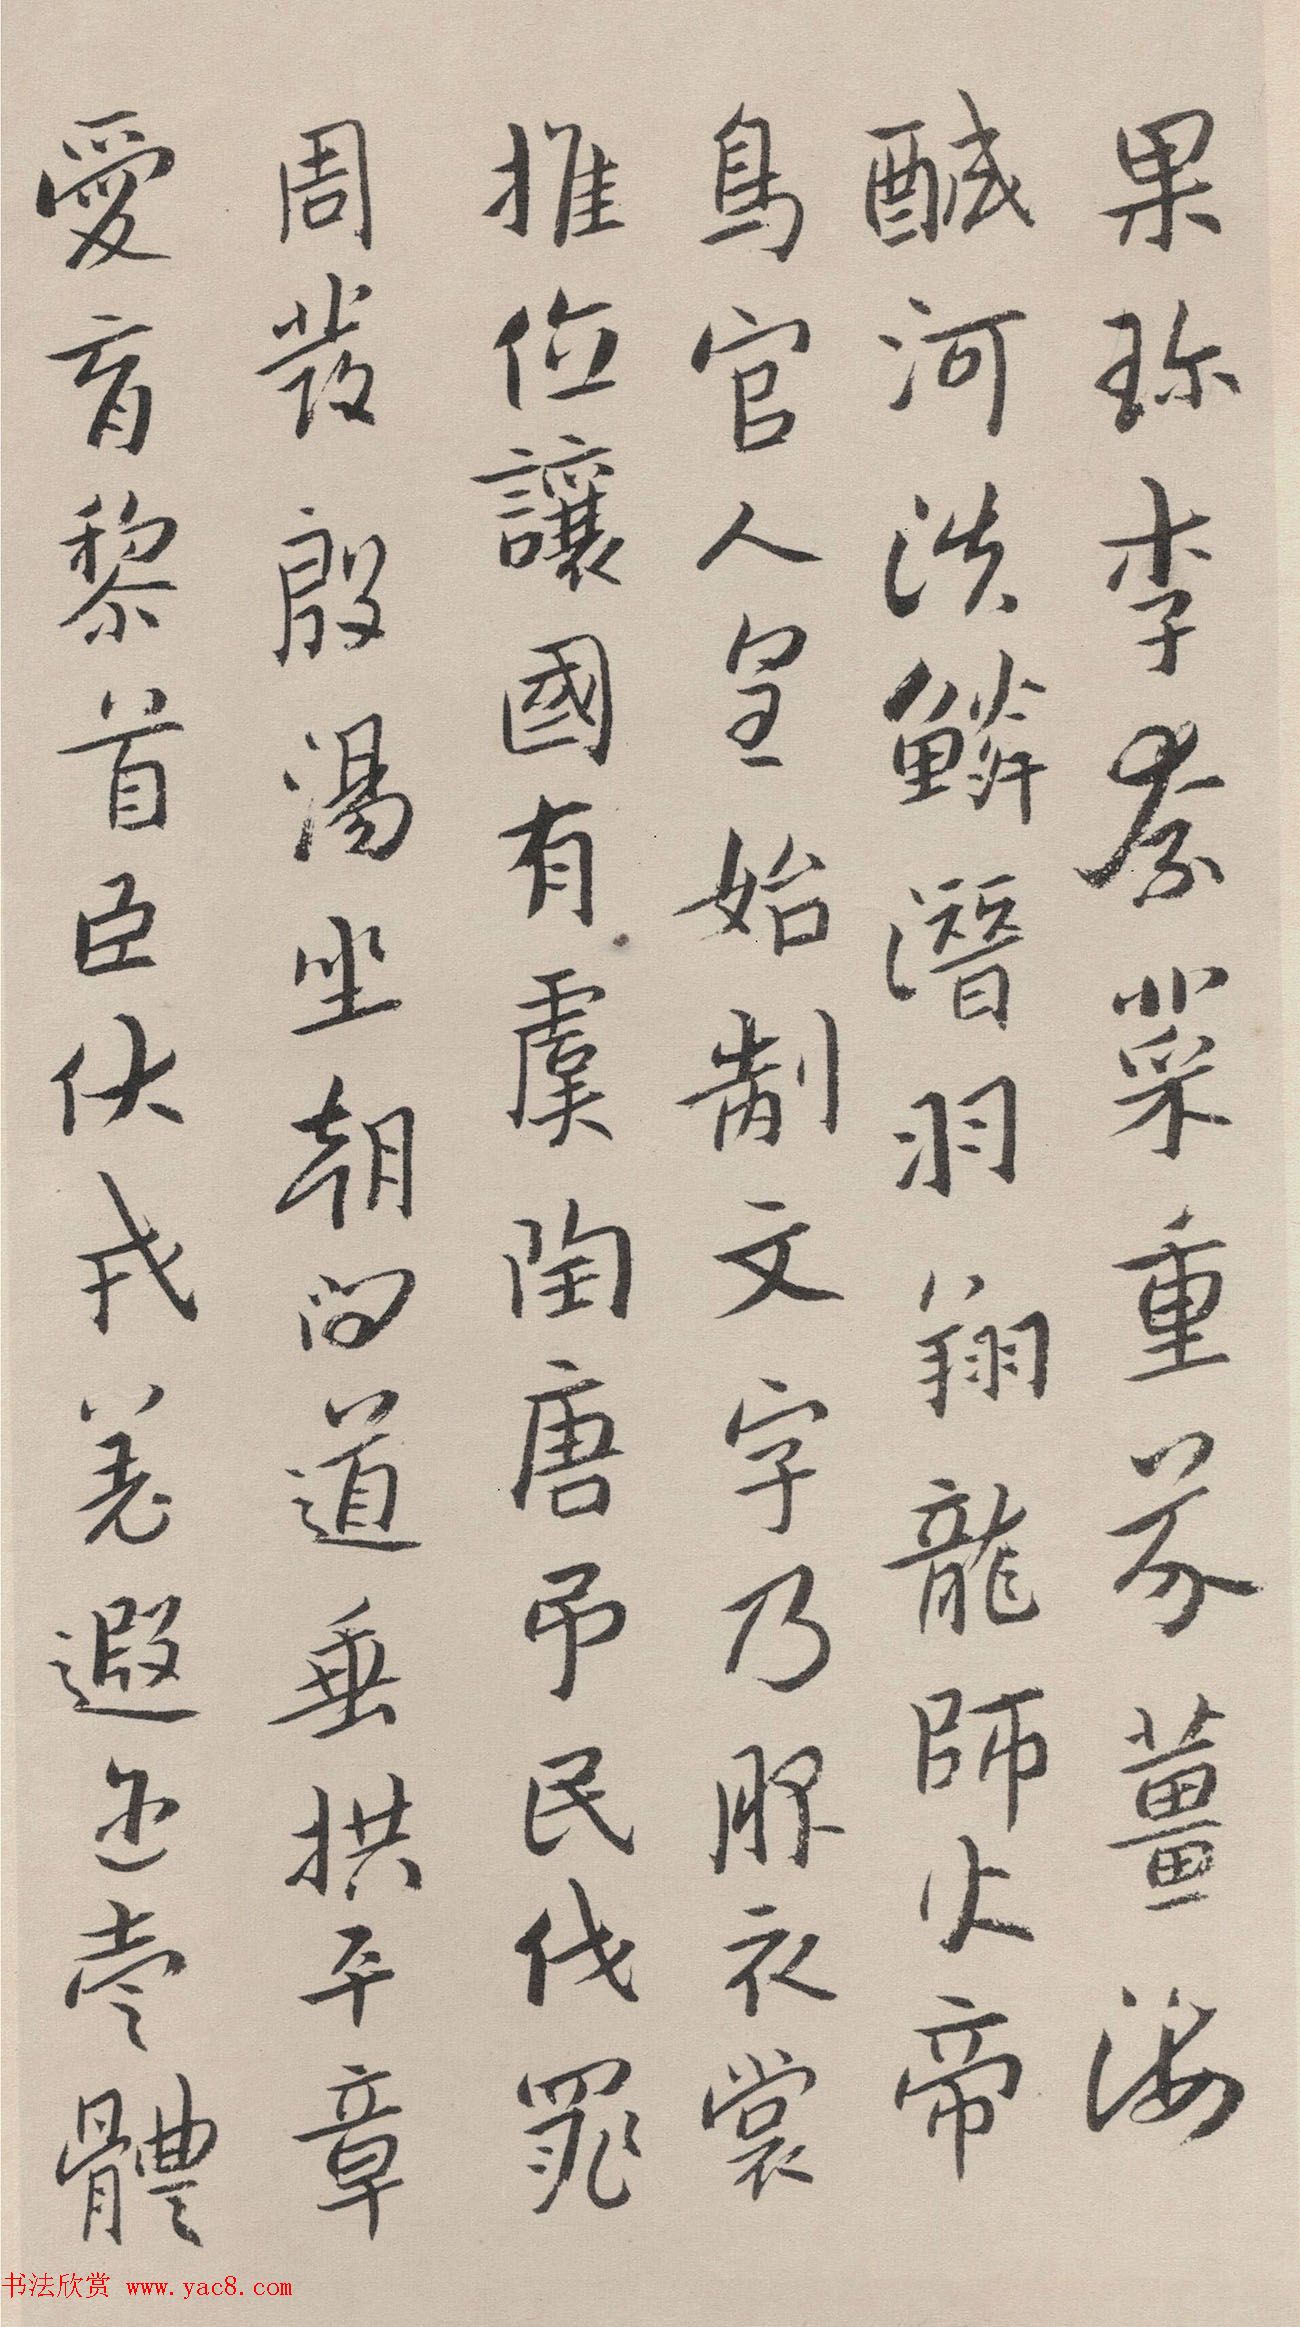 果珎李柰菜重芥薑海
醎河淡鱗潛羽翔龍師火帝
鳥官人皇始制文字乃服衣裳
推位讓國有虞陶唐弔民伐罪
周發殷湯坐朝問道垂拱平章
愛育黎首臣伏戎羌遐迩壹體
书法欣赏 www.yac8.com